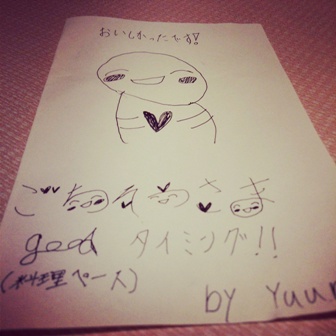 おいしかったです!
ごちそうさま
good タイミング!!
(料理ペース)
by Yuur